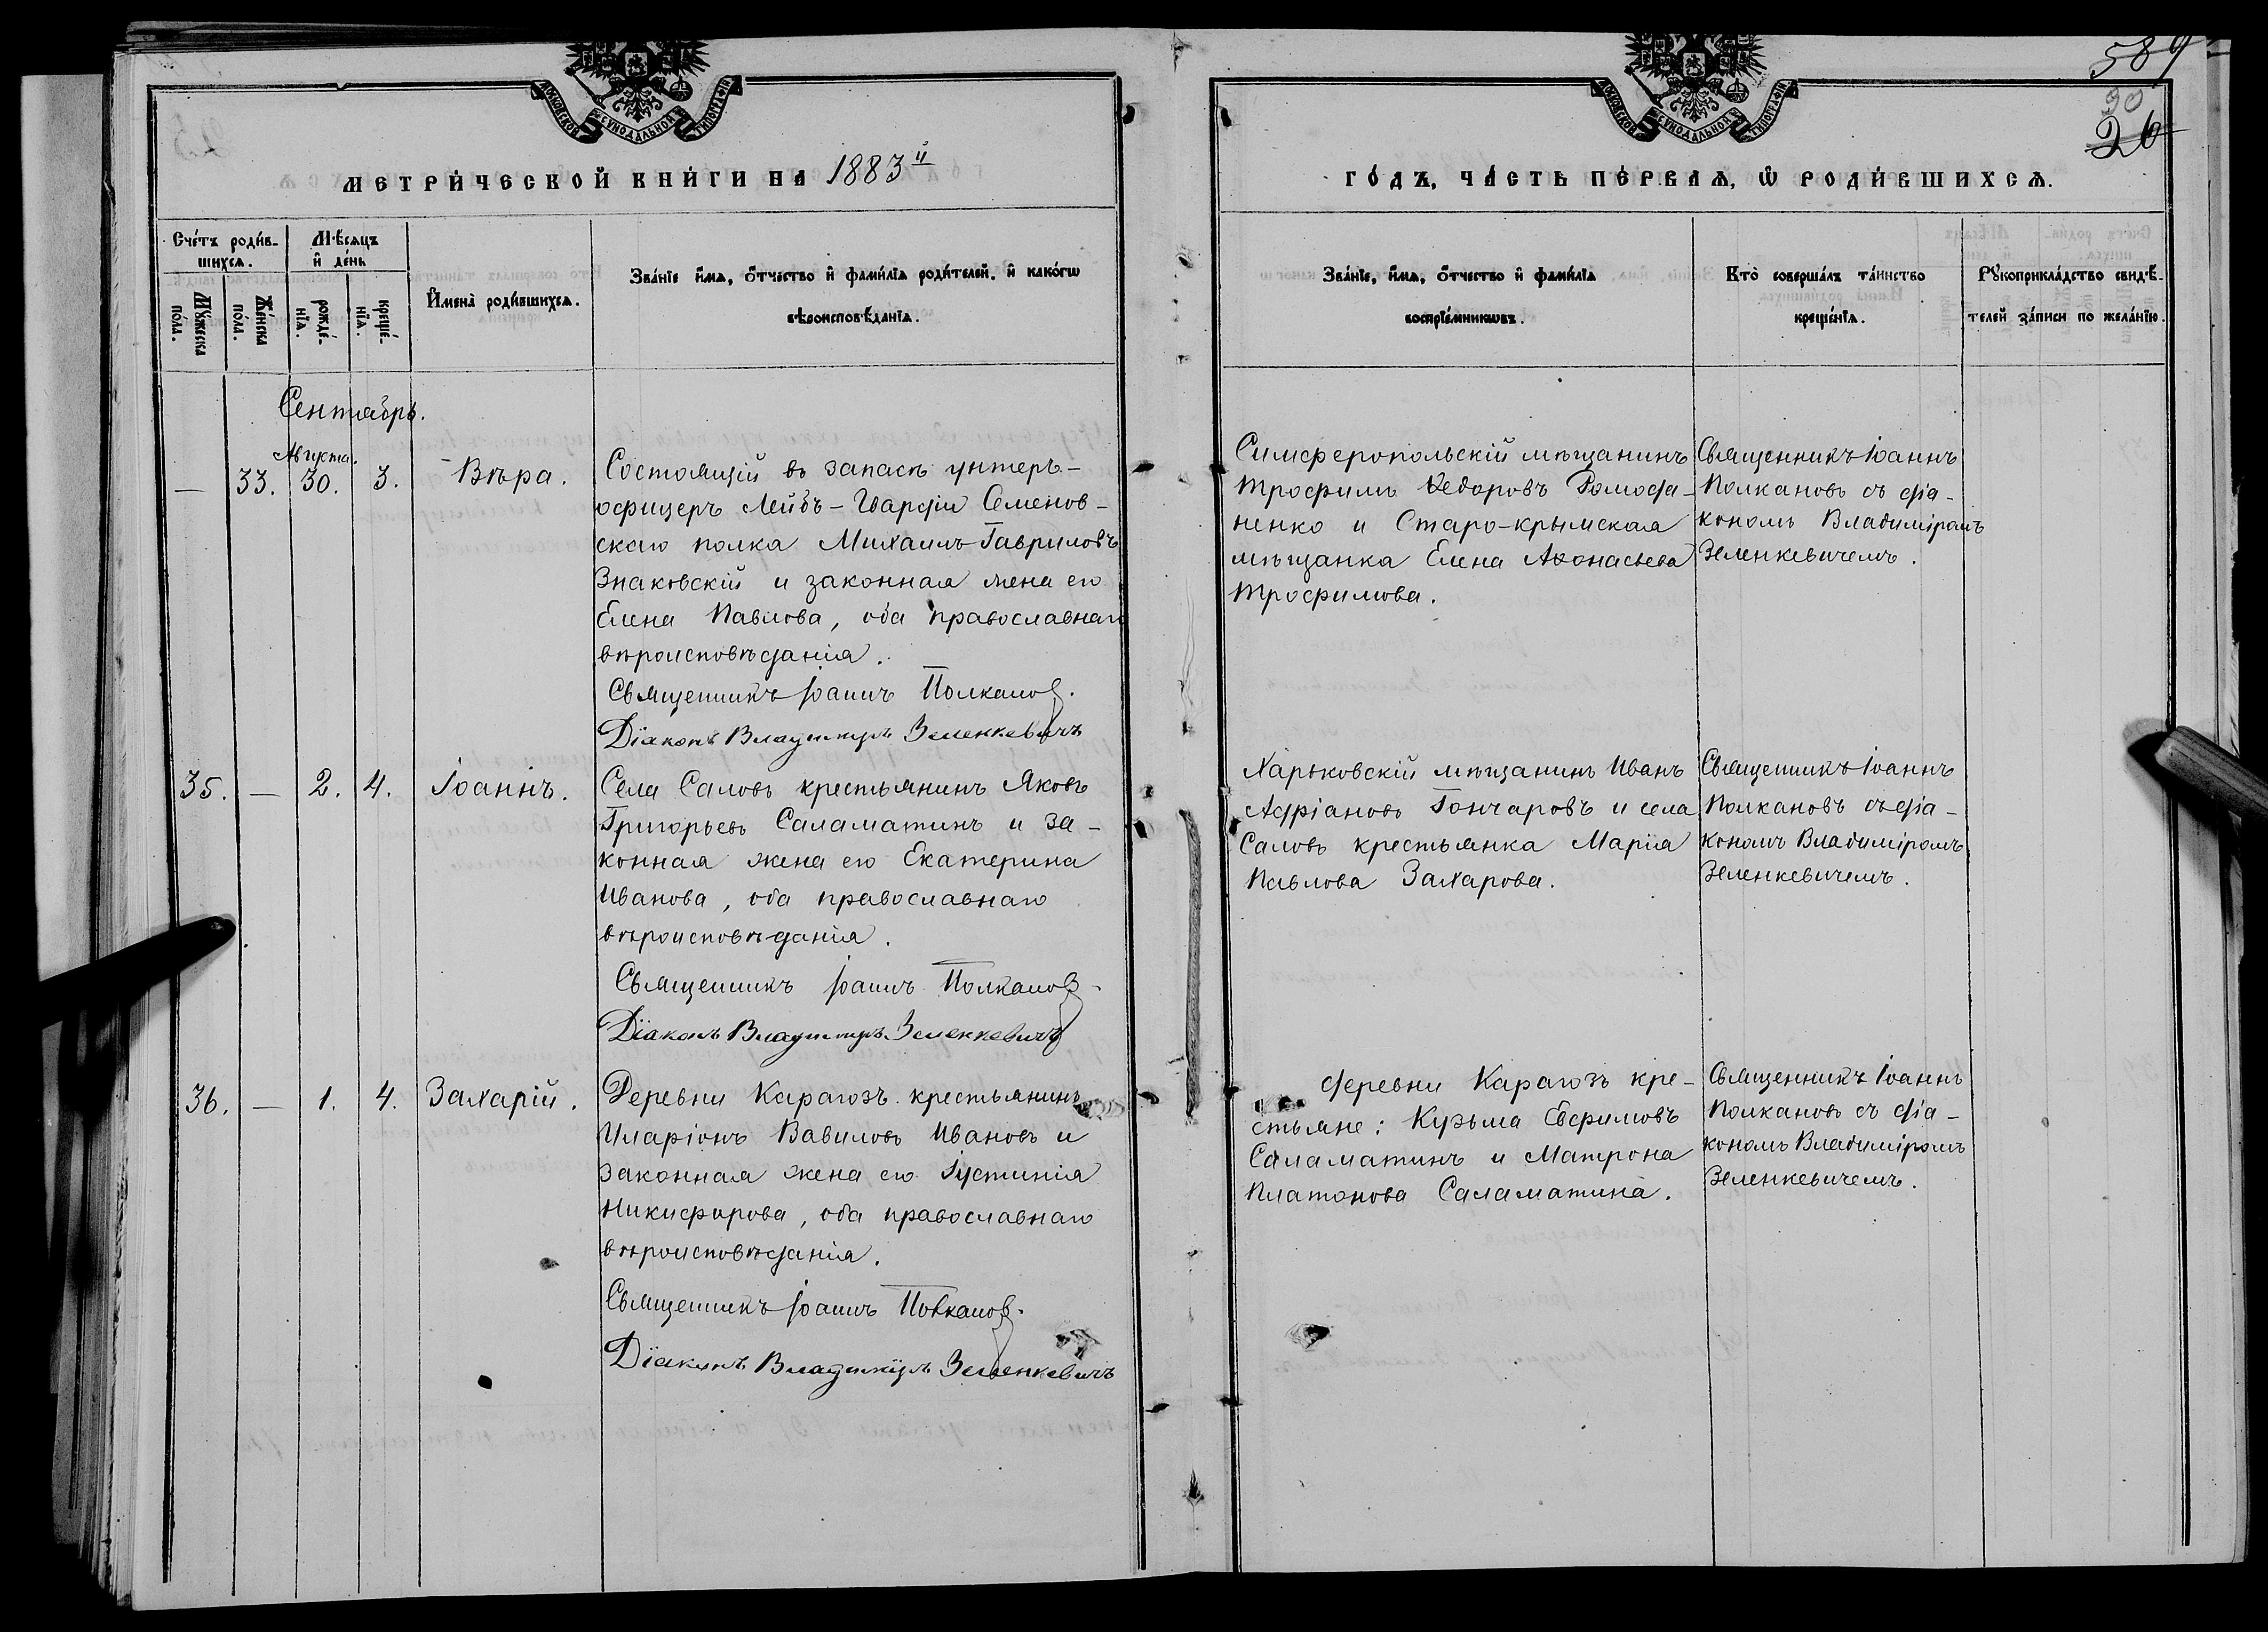 589
90
26
МОСКОВСКОЙ СѴНОДАЛЬНОЙ ТИПОГРАФІИ
МОСКОВСКОЙ СѴНОДАЛЬНОЙ ТИПОГРАФІИ
МЕТРИ́ЧЕСКОЙ КНИ́ГИ НА 1883й
ГО́ДЪ, ЧА́СТЬ ПЕ́РВАѦ, Ѡ РОДИ́ВШИХСѦ.
Сче́тъ роди́в-
шихсѧ.
Мѣсѧцъ
и҆ де́нь
Мꙋжеска
по́ла.
Же́нска
по́ла.
рожде́-
нїѧ.
креще́-
нїѧ.
И҆мена̀ роди́вшихсѧ.
Зва́нїе и҆́мѧ, ѻ҆́тчество и҆ фами́лїѧ роди́телей, и҆ како́гѡ
вѣроисповѣ́данїѧ.
Зва́нїе, и҆́мѧ, ѻ҆́тчество и҆ фами́лїѧ
воспрїе́мникѡвъ.
Кто̀ соверша́лъ та́инство
креще́нїѧ.
Рꙋкоприкла́дство свидѣ́-
телей за́писи по жела́нїю.
Сентябрь.
Августа.
— 33. 30. 3. Вѣра.
Состоящій въ запасѣ унтеръ-
офицеръ Лейбъ-Гвардіи Семенов-
скаго полка Михаилъ Гавриловъ
Знаковскій и законная жена его
Елена Павлова, оба православнаго
вѣроисповѣданія.
Священникъ Іоаннъ Полкановъ.
Діаконъ Владиміръ Зеленкевичъ
Симферопольскій мѣщанинъ
Трофимъ Ѳедоровъ Ромода-
ненко и Старо-крымская
мѣщанка Елена Аѳонасьева
Трофимова.
Священникъ Іоаннъ
Полкановъ съ діа-
кономъ Владиміромъ
Зеленкевичемъ.
35. — 2. 4. Іоаннъ.
Села Саловъ крестьянинъ Яковъ
Григорьевъ Саламатинъ и за-
конная жена его Екатерина
Иванова, оба православнаго
вѣроисповѣданія.
Священникъ Іоаннъ Полкановъ.
Діаконъ Владиміръ Зеленкевичъ
Харьковскій мѣщанинъ Иванъ
Адріановъ Гончаровъ и села
Саловъ крестьянка Марія
Павлова Захарова.
Священникъ Іоаннъ
Полкановъ съ діа-
кономъ Владиміромъ
Зеленкевичемъ.
36. — 1. 4. Захарій.
Деревни Карагозъ крестьянинъ
Иларіонъ Вавиловъ Ивановъ и
законная жена его Іустинія
Никифорова, оба православнаго
вѣроисповѣданія.
Священникъ Іоаннъ Полкановъ.
Діаконъ Владиміръ Зеленкевичъ
деревни Карагозъ кре-
стьяне: Кузьма Евфимовъ
Саламатинъ и Матрона
Платонова Саламатина.
Священникъ Іоаннъ
Полкановъ съ діа-
кономъ Владиміромъ
Зеленкевичемъ.